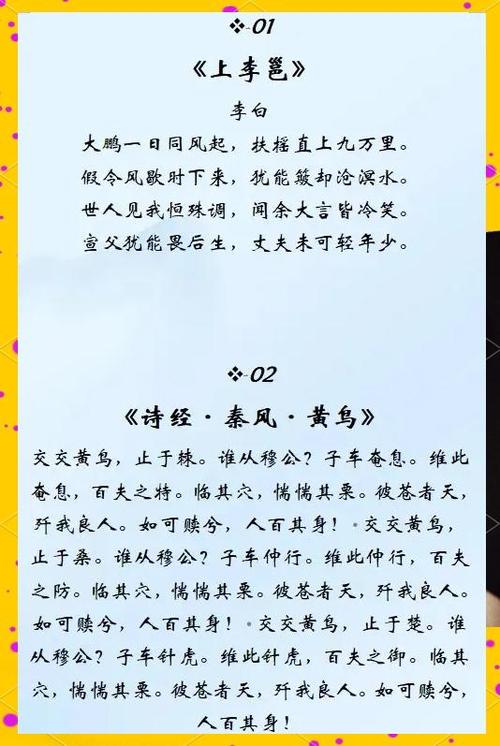 ❖-01
《上李邕》
李白
大鹏一日同风起，扶摇直上九万里。
假令风歇时下来，犹能簸却沧溟水。
世人见我恒殊调，闻余大言皆冷笑。
宣父犹能畏后生，丈夫未可轻年少。
❖-02
《诗经·秦风·黄鸟》
交交黄鸟，止于棘。谁从穆公？子车奄息。维此
奄息，百夫之特。临其穴，惴惴其栗。彼苍者天，
歼我良人。如可赎兮，人百其身！·交交黄鸟，
止于桑。谁从穆公？子车仲行。维此仲行，百夫
之防。临其穴，惴惴其栗。彼苍者天，歼我良人。
如可赎兮，人百其身！·交交黄鸟，止于楚。谁
从穆公？子车针虎。维此针虎，百夫之御。临其
穴，惴惴其栗。彼苍者天，歼我良人。如可赎兮，
人百其身！